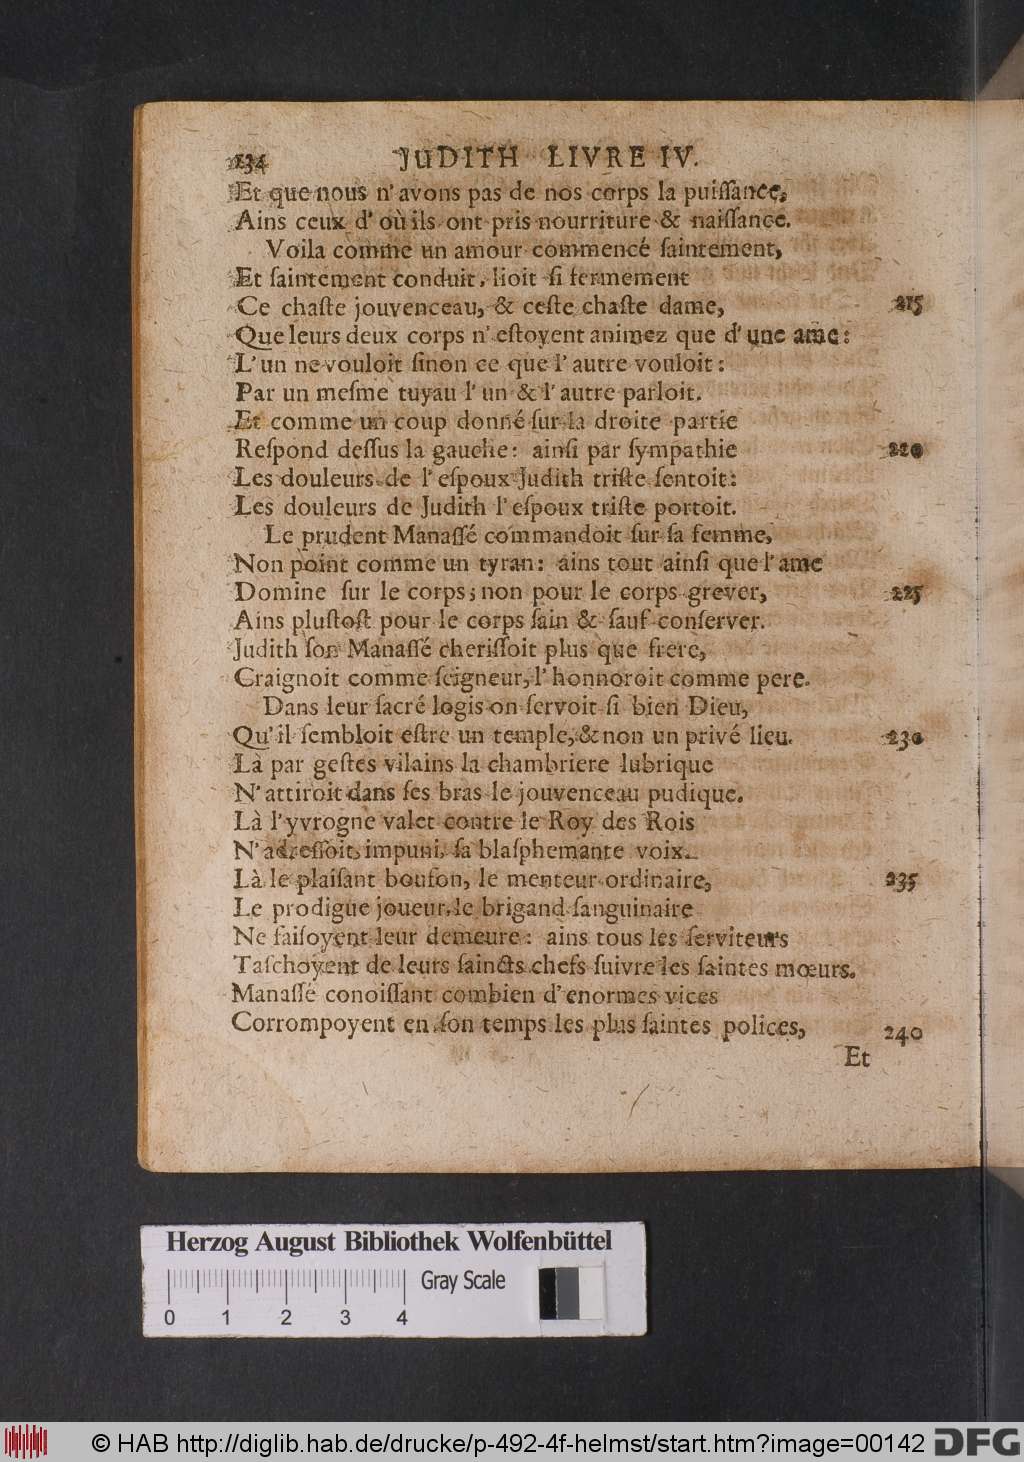 234 JUDITH LIVRE IV.
Et que nous n'avons pas de nos corps la puiſſance,
Ains ceux d'où ils ont pris nourriture & naiſſance.
Voila comme un amour commencé ſaintement,
Et ſaintement conduit, lioit ſi fermement
Ce chaſte jouvenceau, & ceſte chaſte dame, 215
Que leurs deux corps n'eſtoyent animez que d'une ame:
L'un ne vouloit ſinon ce que l'autre vouloit:
Par un meſme tuyau l'un & l'autre parloit.
Et comme un coup donné ſur la droite partie
Reſpond deſſus la gauche: ainſi par ſympathie 220
Les douleurs de l'eſpoux Judith triſte ſentoit:
Les douleurs de Judith l'eſpoux triſte portoit.
Le prudent Manaſſé commandoit ſur ſa femme,
Non point comme un tyran: ains tout ainſi que l'ame
Domine ſur le corps; non pour le corps grever, 225
Ains pluſtoſt pour le corps ſain & ſauf conſerver.
Judith ſon Manaſſé cheriſſoit plus que frere,
Craignoit comme ſeigneur, l'honnoroit comme pere.
Dans leur ſacré logis on ſervoit ſi bien Dieu,
Qu'il ſembloit eſtre un temple, & non un privé lieu. 230
Là par geſtes vilains la chambriere lubrique
N'attiroit dans ſes bras le jouvenceau pudique.
Là l'yvrogne valet contre le Roy des Rois
N'adreſſoit, impuni, ſa blaſphemante voix.
Là le plaiſant boufon, le menteur ordinaire, 235
Le prodigue joueur, le brigand ſanguinaire
Ne faiſoyent leur demeure: ains tous les ſerviteurs
Taſchoyent de leurs ſaincts chefs ſuivre les ſaintes mœurs.
Manaſſé conoiſſant combien d'enormes vices
Corrompoyent en ſon temps les plus ſaintes polices, 240
Et
Herzog August Bibliothek Wolfenbüttel
Gray Scale
0 1 2 3 4
© HAB http://diglib.hab.de/drucke/p-492-4f-helmst/start.htm?image=00142 DFG